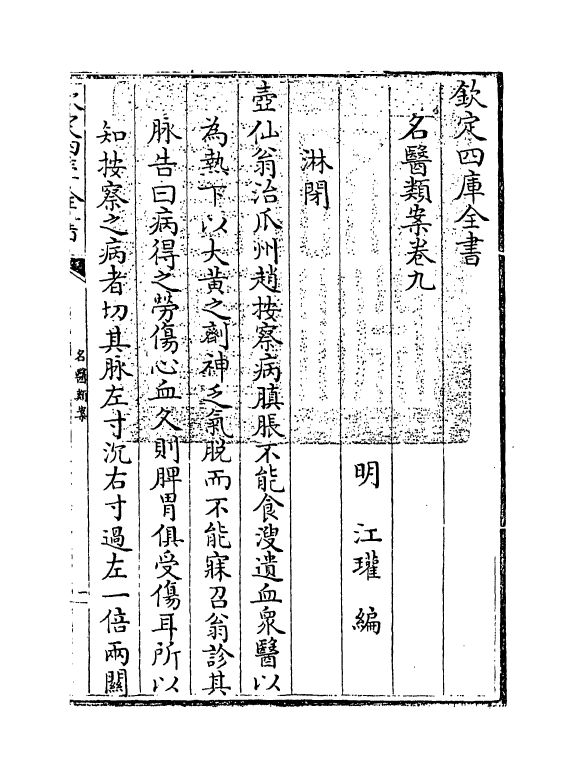 欽定四庫全書
名醫類案卷九
明 江瓘 編
淋閉
壺仙翁治爪州趙按察病䐜脹不能食溲遺血衆醫以
為熱下以大黄之劑神乏氣脱而不能寐召翁診其
脉告曰病得之勞傷心血久則脾胃俱受傷耳所以
知按察之病者切其脉左寸沉右寸過左一倍兩關
欽定四庫全書
名醫類案
一